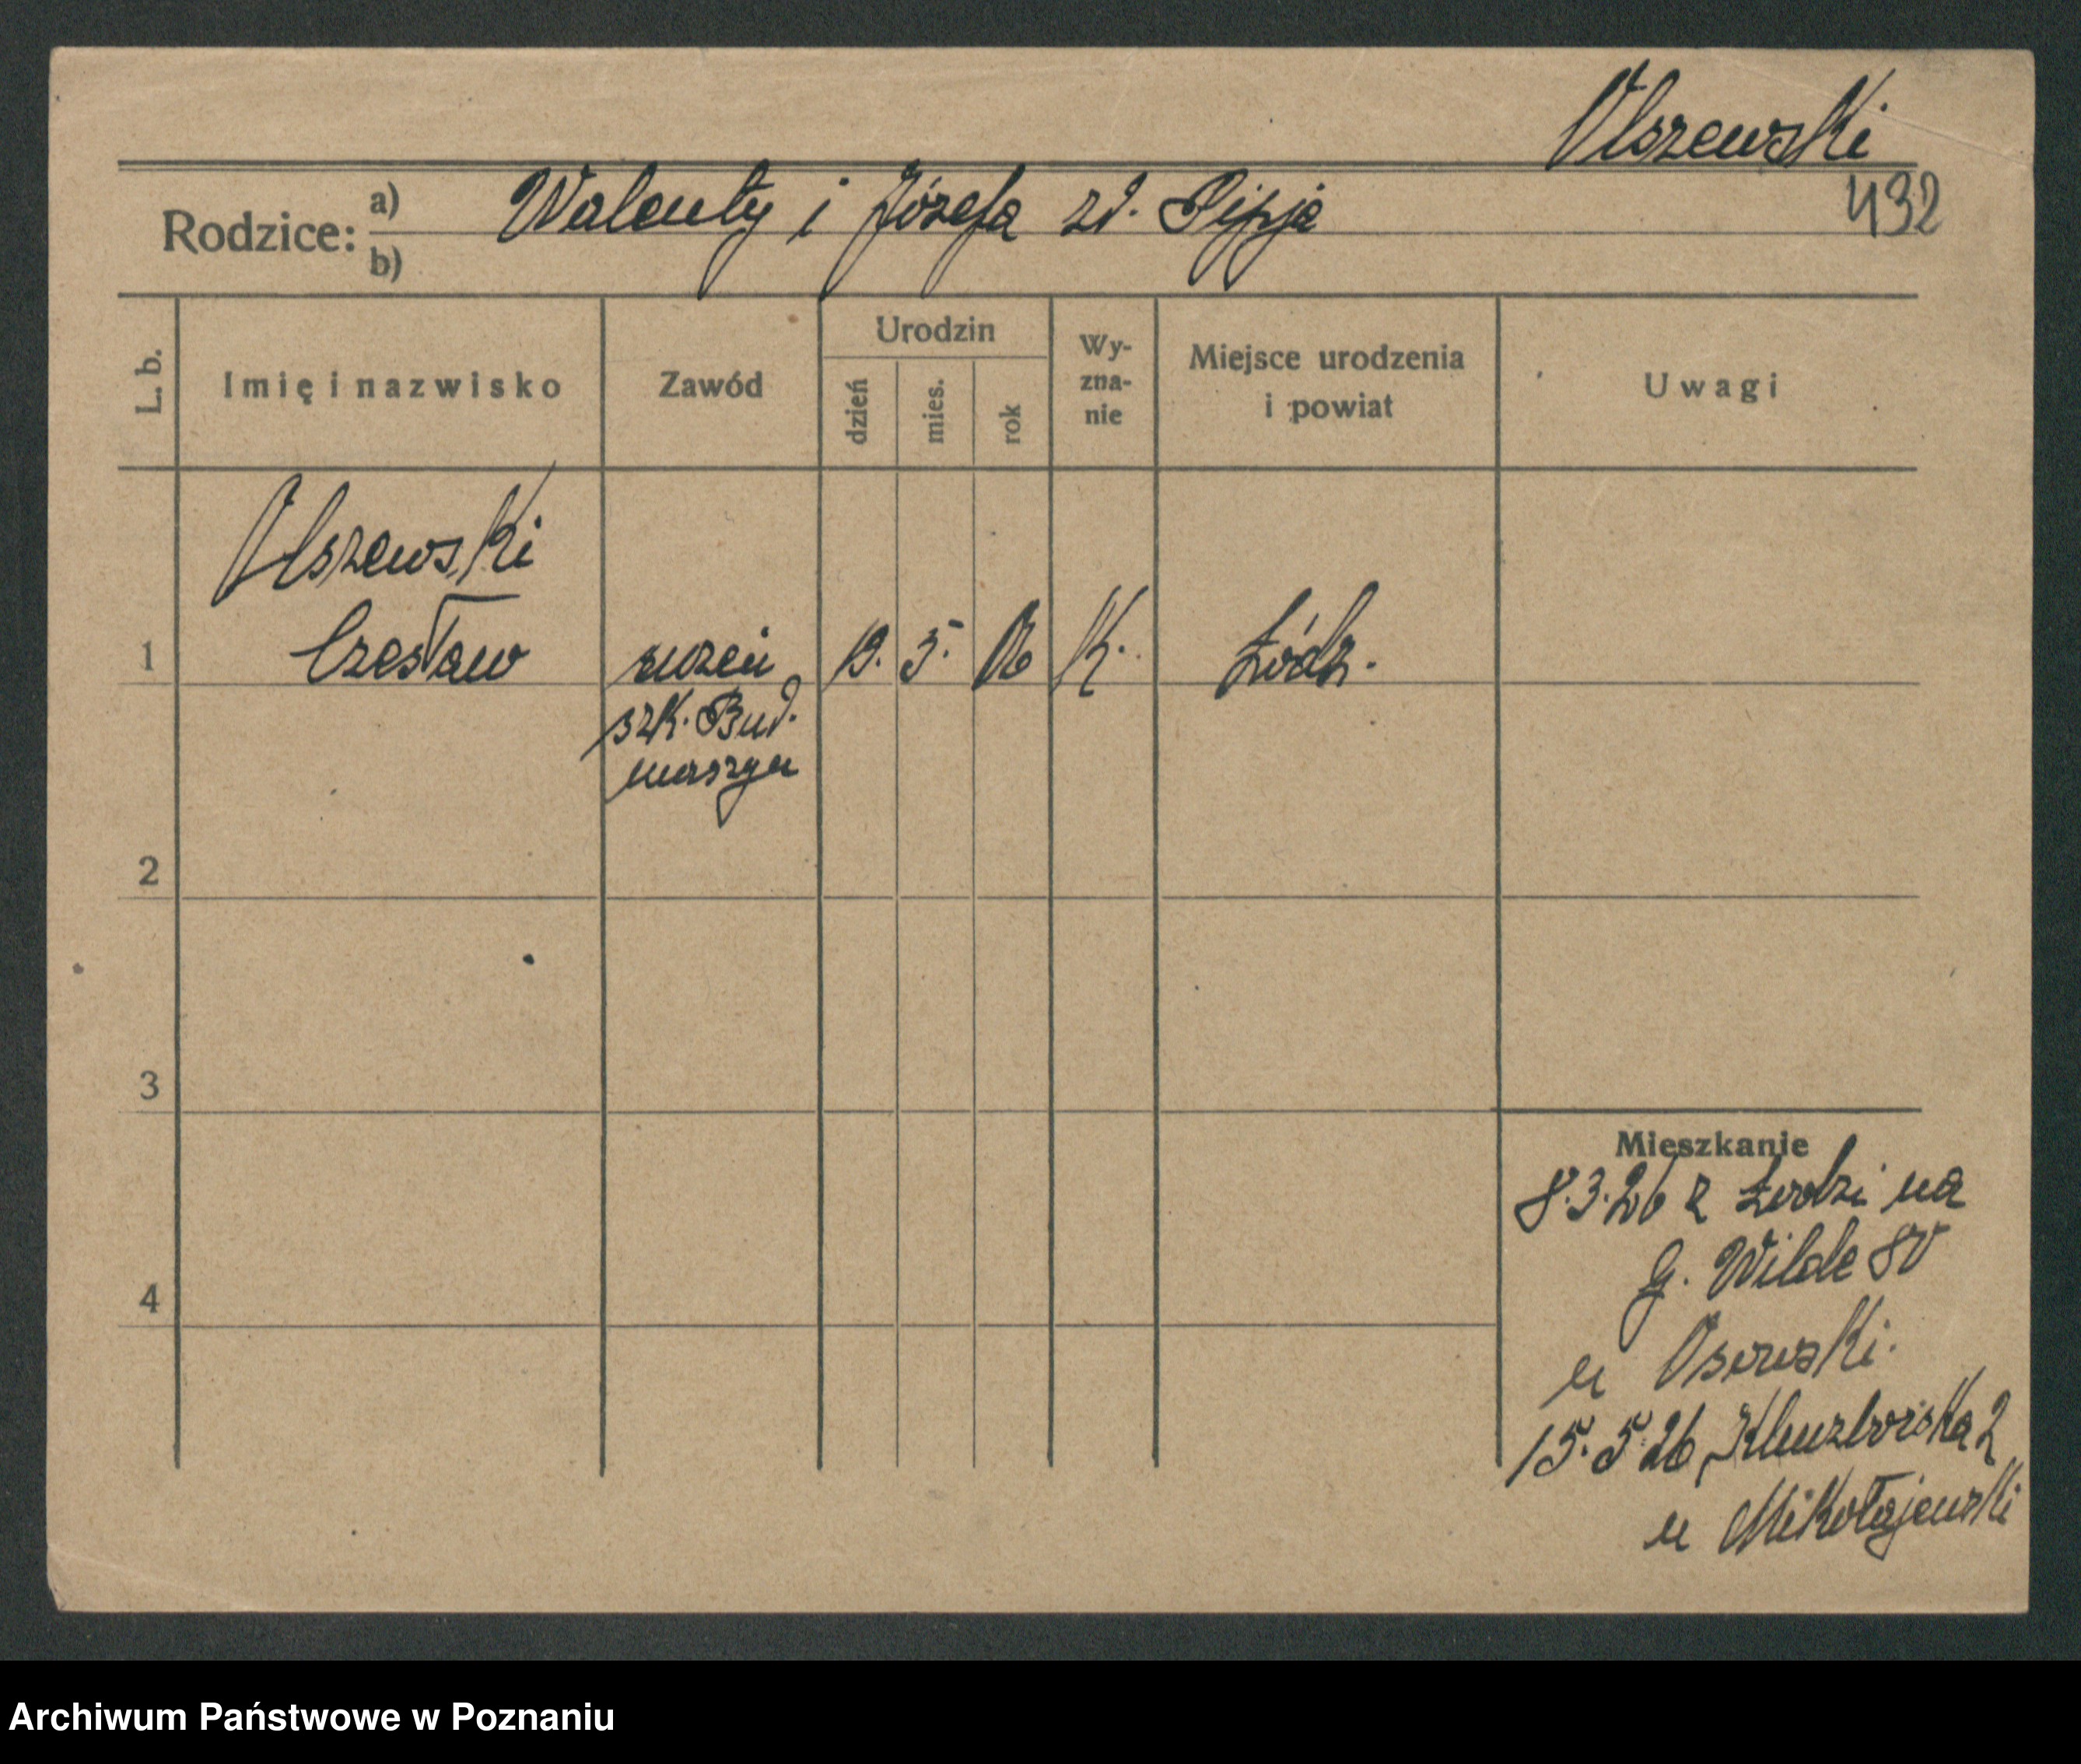 Olszewski
432
Rodzice: a) Walenty i Józefa zd.
b)
L. b.
Imię i nazwisko
Zawód
Urodzin
dzień
mies.
rok
Wy-
zna-
nie
Miejsce urodzenia
i powiat
Uwagi
Olszewski
1 Czesław uczeń 19. 5. 06 K. Łódź.
szk. Bud.
maszyn
2
3
4
Mieszkanie
8.3.26 z Łodzi na
G. Wilde 80
u Osowski.
15.5.26 2
u Mikołajewski
Archiwum Państwowe w Poznaniu